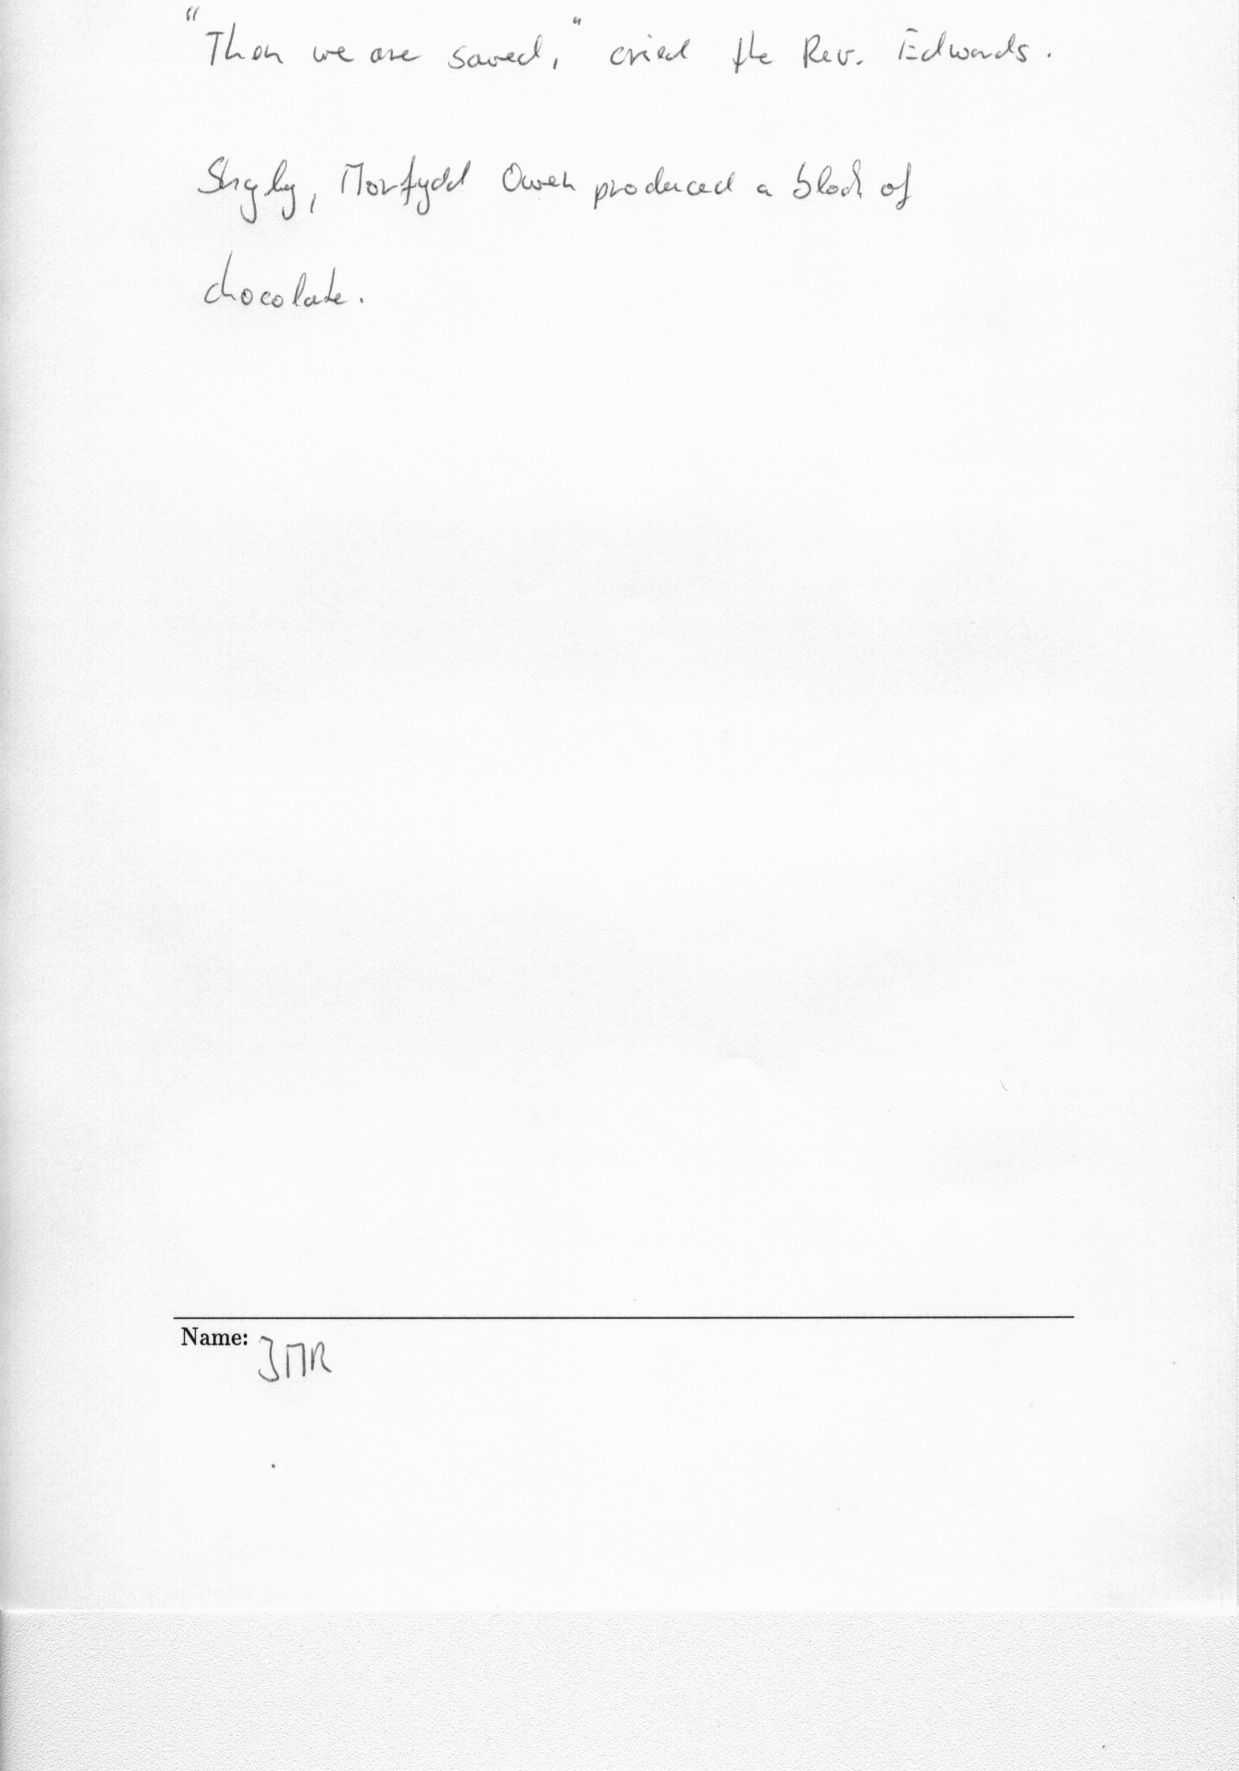 "Then we are saved," cried the Rev. Edwards.
Shyly, Morfydd Owen produced a block of
chocolate.
Name: JMR